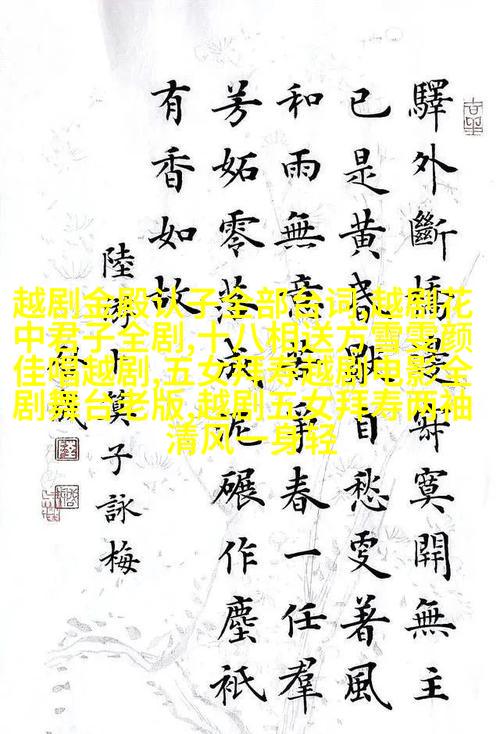 驛外斷橋邊寂寞開無主
已是黃昏獨自愁更著風
和雨無意苦爭春一任羣
芳妬零落成泥碾作塵衹
有香如故
陸游卜筭子詠梅
越剧金殿认子全部台词,越剧花
中君子全剧,十八相送方雪雯颜
佳唱越剧,五女拜寿越剧电影全
剧舞台老版,越剧五女拜寿两袖
清风一身轻